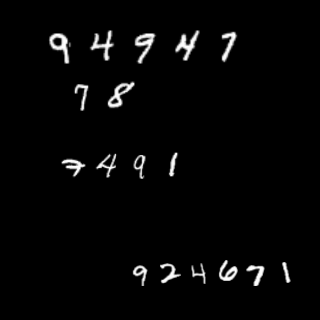 94947
78
7491
924671